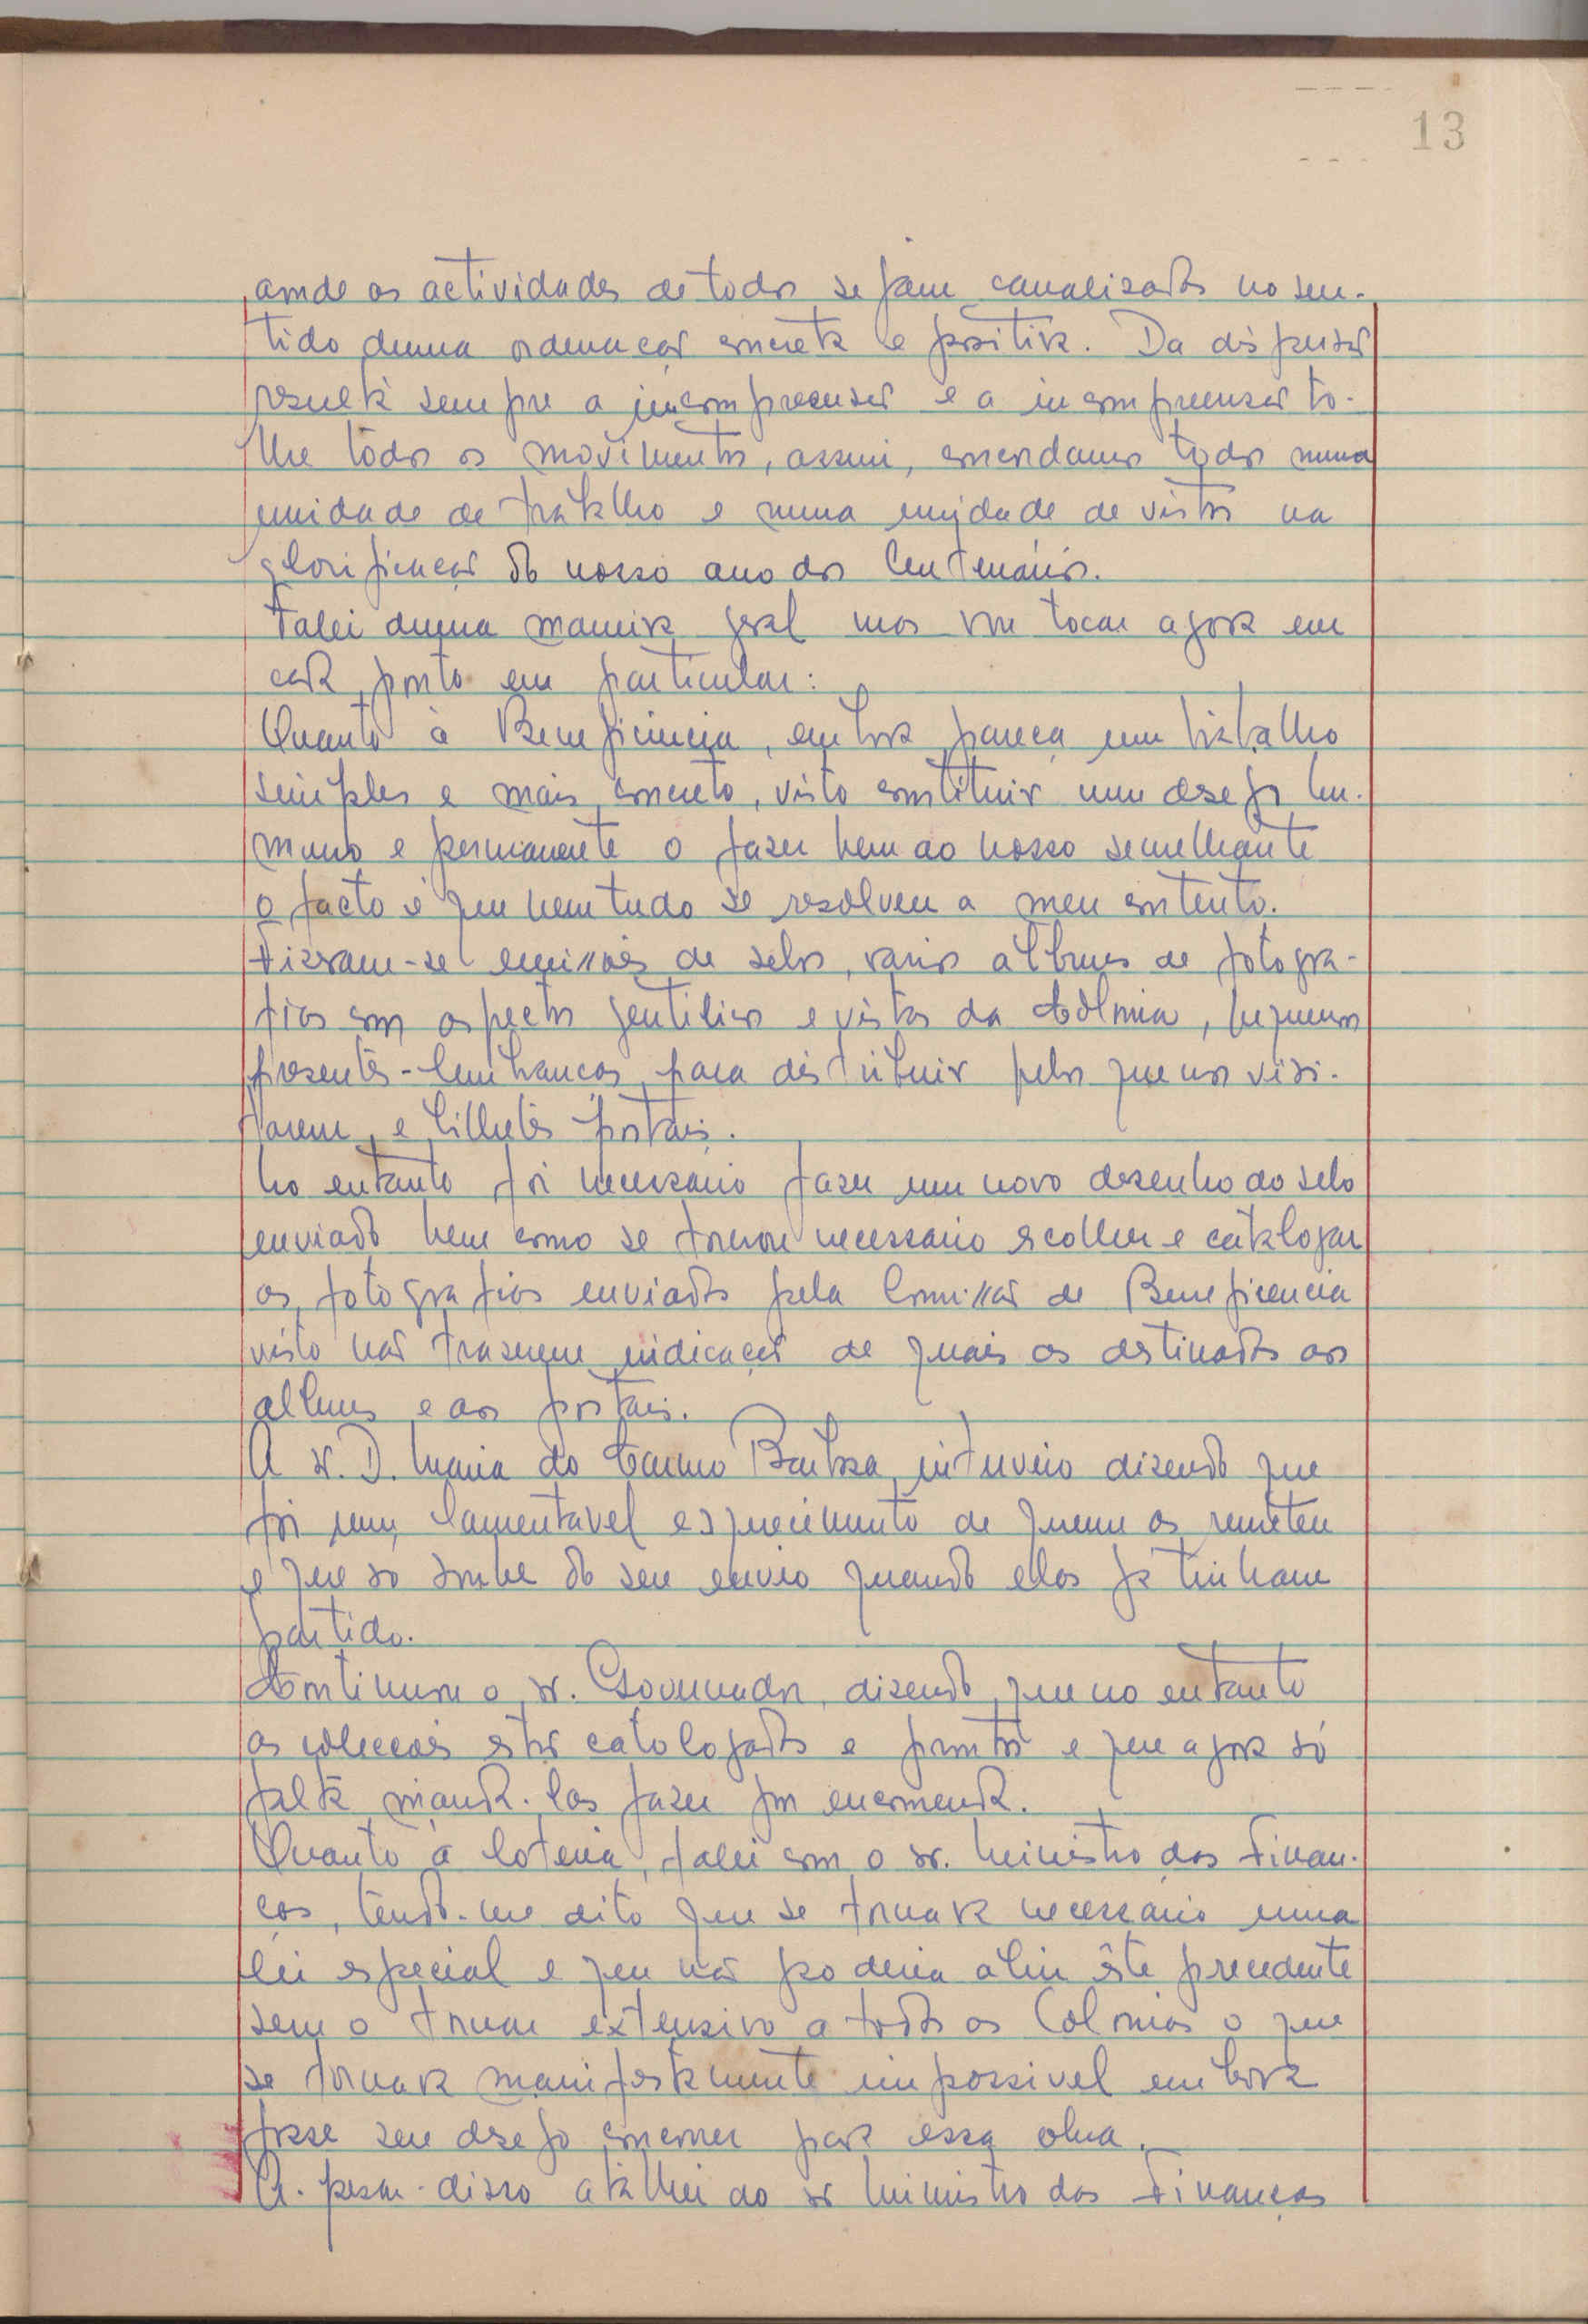 13
aonde as actividades de todos sejam canalizadas no sen-
tido duma ordenação concreta e positiva. Da dispersão
resulta sempre a incompreensão e a incompreensão to-
lhe todos os movimentos, assim, concordamos todos numa
unidade de trabalho e numa unidade de vistas na
glorificação do nosso ano dos Centenários.
Falei duma maneira geral mas vou tocar agora em
cada ponto em particular:
Quanto à Beneficiencia, embora pareça um trabalho
simples e mais concreto, visto constituir um desejo hu-
mano e permanente o fazer bem ao nosso semelhante
o facto é que nem tudo se resolveu a meu contento.
Fizeram-se emissões de selos, varios albuns de fotogra-
fias com aspectos gentilicos e vistas da Colonia, pequenos
presentes-lembranças para distribuir pelos que nos visi-
tarem, e bilhetes postais.
No entanto foi necessário fazer um novo desenho do selo
enviado bem como se tornou necessario escolher e catalogar
as fotografias enviadas pela Comissão de Beneficencia
visto não trazerem indicação de quais as destinadas aos
albuns e aos postais.
A sr. D. Maria do Carmo Barbosa, interveio dizendo que
foi um lamentavel esquecimento de quem as remeteu
e que só soube do seu envio quando elas já tinham
partido.
Continuou o sr. Governador, dizendo que no entanto
as colecções estão catologadas e prontas e que agora só
falta manda-las fazer por encomenda.
Quanto à lotaria, falei com o sr. Ministro das Finan-
ças, tendo-me dito que se tornava necessário uma
lei especial e que não poderia abrir êste precedente
sem o tornar extensivo a todas as Colonias o que
se tornava manifestamente impossivel embora
fosse seu desejo concorrer para essa obra.
A-pesar-disso atalhei ao sr Ministro das Finanças